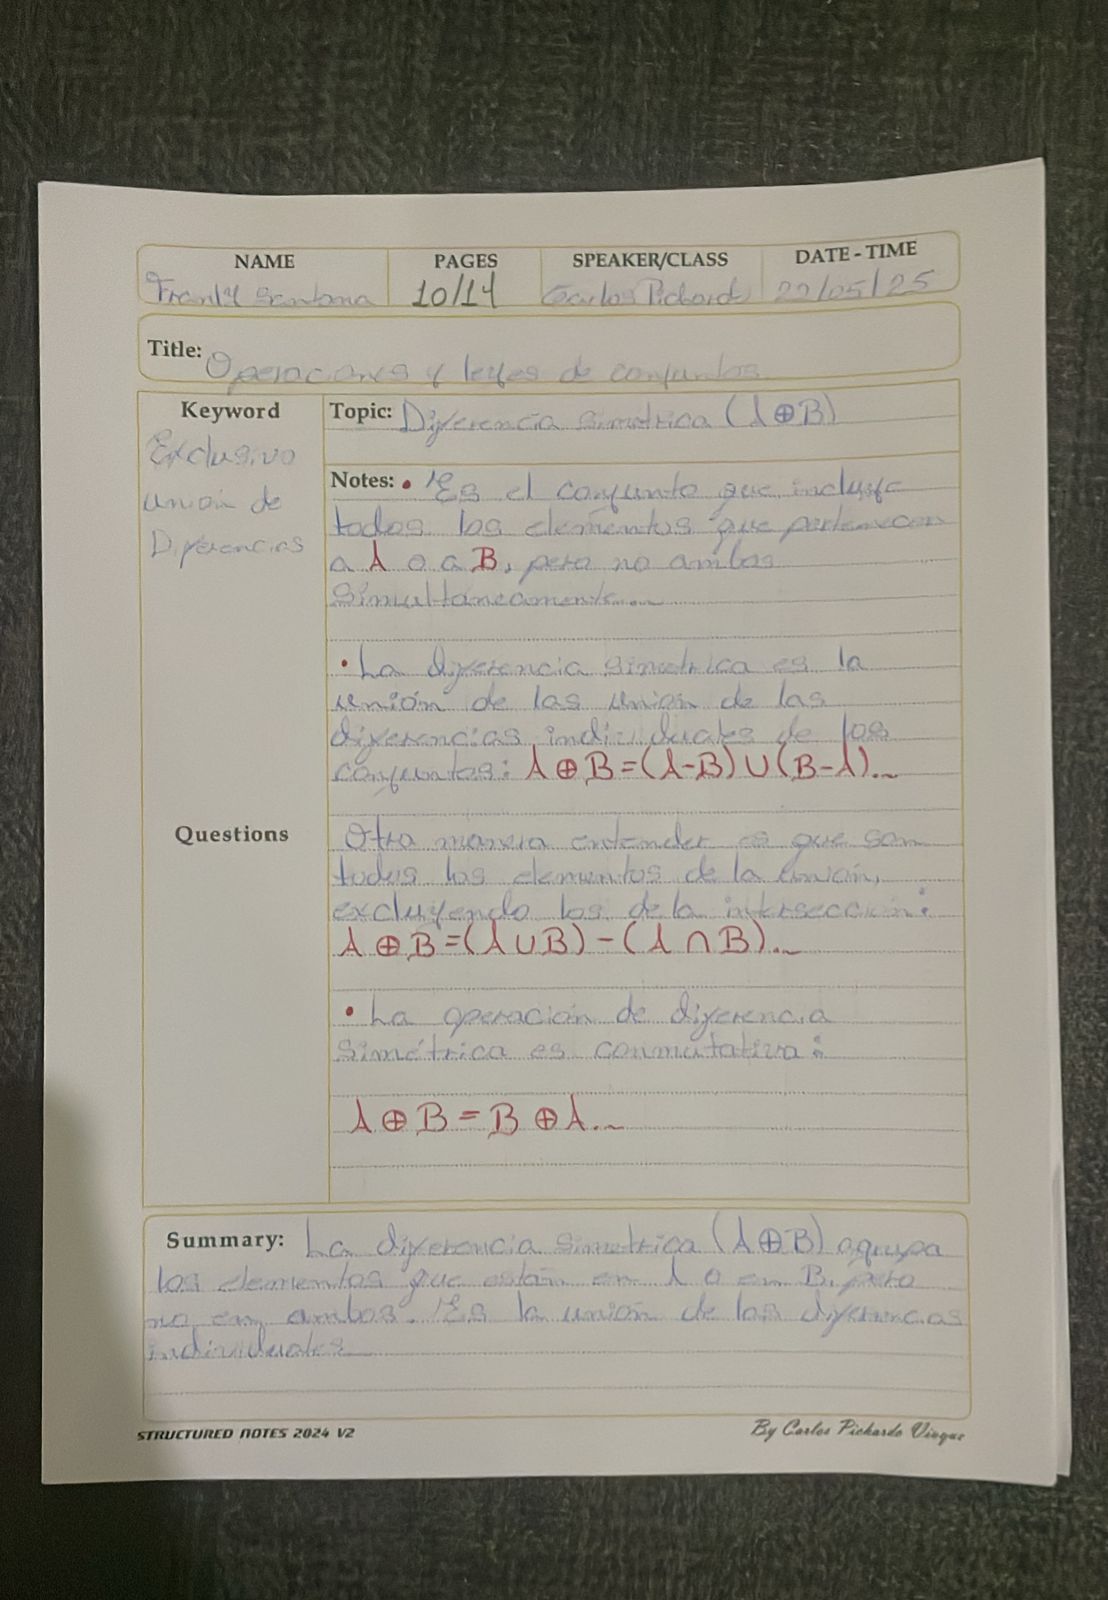 NAME PAGES SPEAKER/CLASS DATE-TIME
Franly Santana 10/14 Carlos Pichardo 22/05/25
Title: Operaciones y leyes de conjuntos
Keyword
Exclusivo
unión de
Diferencias
Topic: Diferencia simetrica (A⊕B)
Notes: • Es el conjunto que incluye
todos los elementos que pertenecen
a A o a B, pero no ambos
simultáneamente...
• La diferencia simetrica es la
unión de las union de las
diferencias individuales de los
conjuntos: A⊕B=(A-B)∪(B-A)..~
Questions
Otra manera entender es que son
todos los elementos de la unión,
excluyendo los de la intersección:
A⊕B=(A∪B)-(A∩B)..~
• La operación de diferencia
simétrica es conmutativa:
A⊕B=B⊕A..~
Summary: La diferencia simetrica (A⊕B) agrupa
los elementos que están en A o en B, pero
no en ambos. Es la unión de las diferencias
individuales
STRUCTURED NOTES 2024 V2
By Carlos Pichardo Viuque